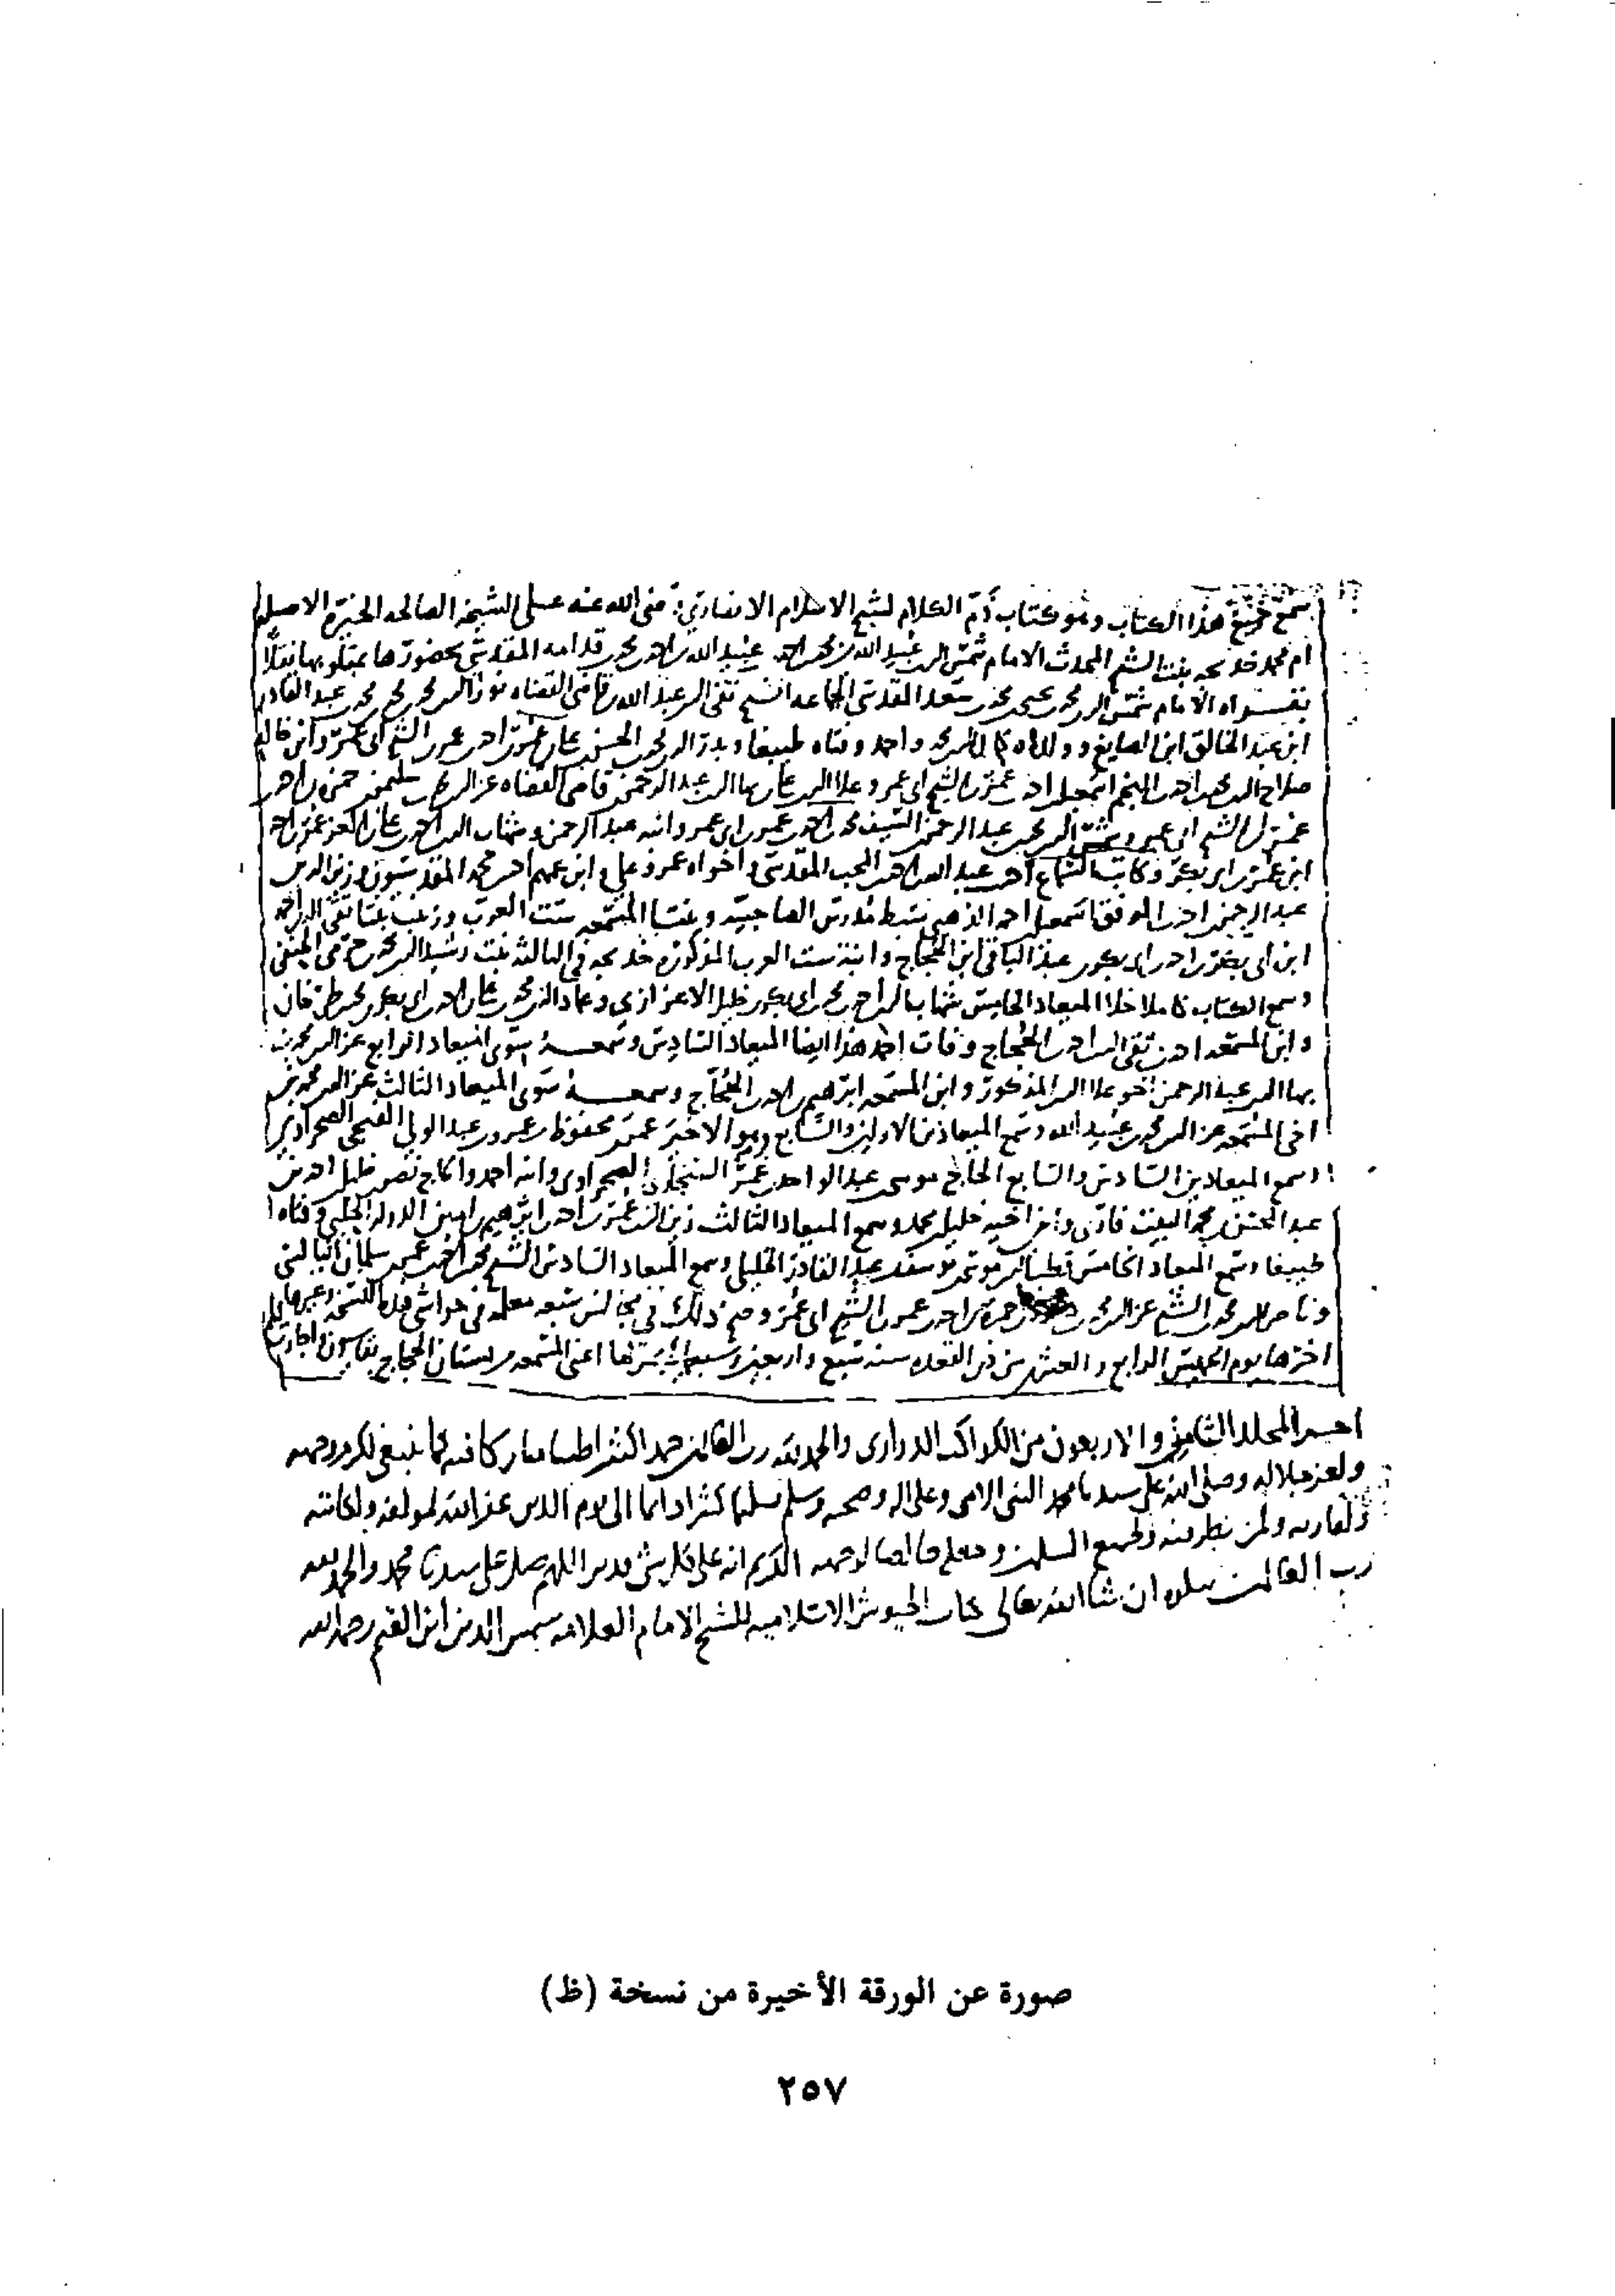 سمع جميع هذا الكتاب وهو كتاب ذم الكلام لشيخ الاسلام الانصاري رضى الله عنه على الشيخه الصالحه الخيرة الاصيله
ام محمد خديجه بنت الشيخ المحدث الامام شمس الدين عبيد الله بن محمد بن احمد بن عبيد الله بن احمد بن محمد بن قدامه المقدسي بحضورها
الامام شمس الدين محمد بن يحيى بن محمد بن سعد المقدسي الجماعه الشيخ تقى الدين عبد الله بن قاضى القضاه نور الدين محمد بن محمد بن محمد بن عبد القادر
ابن عبد الخالق ابن الصايغ وولداه محمد واحمد وفتاه طيبغا وبدر الدين محمد بن الحسن بن على بن عمر بن احمد بن عمر بن الشيخ ابى عمر وابن خاله
صلاح الدين محمد بن احمد بن النجم اسمعيل بن احمد بن عمر بن الشيخ ابى عمر وعلا الدين على بن بها الدين عبد الرحمن بن قاضى القضاه عز الدين محمد بن سليمن بن حمزه بن احمد بن
عمر بن الشيخ ابى عمر وشمس الدين محمد بن عبد الرحمن بن محمد بن احمد بن عمر بن ابى عمر وابنه عبد الرحمن وشهاب الدين احمد بن على بن العز عمر بن احمد
ابن عمر بن ابى بكر وكاتب السماع احمد بن عبد الله بن احمد بن المحب المقدسى واخواه عمر وعلى وابن عمهم احمد بن محمد المقدسيون وزين الدين
عبد الرحمن بن احمد بن الموفق اسمعيل بن احمد الذهبى مدرس الصاحبيه وبنتا المسمعه ست العرب وزينب بنتا تقى الدين احمد
ابن ابى بكر بن احمد بن ابى بكر بن عبد الباقى ابن الحجاج وابنة ست العرب المذكوره خديجه فى الثالثه بنت رشيد الدين محمد الحنفى
وسمع الكتاب كاملا خلا الميعاد الخامس شهاب الدين احمد بن محمد بن ابى بكر بن خليل الاعزازي وعماد الدين محمد بن على بن احمد بن ابى بكر بن محمد بن طرخان
وابن المسمعه احمد بن تقى الدين احمد بن الحجاج وفات احمد هذا ايضا الميعاد السادس وسمعه سوى الميعاد الرابع عز الدين محمد بن
بها الدين عبد الرحمن اخو علا الدين المذكور وابن المسمعه ابرهيم بن احمد بن الحجاج وسمعه سوى الميعاد الثالث عز الدين محمد بن
اخى المسمعه عز الدين محمد بن عبيد الله وسمع الميعادين الاولين والسابع وهو الاخير عمر بن محفوظ بن عمر بن عبد الولي الصحراوي
وسمع الميعادين السادس والسابع الحاج موسى بن عبد الواحد بن عمر الصحراوى وابنه احمد والحاج نصر بن خليل بن احمد بن
عبد المحسن بن محمد وابن اخيه خليل بن محمد وسمع الميعاد الثالث زين الدين عمر بن احمد بن ابرهيم بن امين الدوله الحلبى وفتاه
طيبغا وسمع الميعاد الخامس بن عبد القادر الخليلى وسمع الميعاد السادس الشيخ محمد بن احمد بن عمر بن سلمان البالسى
وناصر الدين محمد بن الشيخ عز الدين محمد بن احمد بن عمر بن الشيخ ابى عمر وصح ذلك فى مجالس سبعه معلمه فى حواشى هذه النسخه وغيرها
اخرها يوم الخميس الرابع والعشرين من ذى القعده سنه تسع واربعين وسبعمائة بمنزلها اعنى المسمعه من بستان الحجاج بقاسيون واجازت
اخر المجلد الثامن والاربعون من الكواكب الدرارى والحمد لله رب العالمين حمدا كثيرا طيبا مباركا فيه كما ينبغى لكرم وجهه
ولعز جلاله وصلى الله على سيدنا محمد النبى الامى وعلى اله وصحبه وسلم تسليما كثيرا دائما الى يوم الدين غفر الله لمولفه ولكاتبه
ولقاريه ولمن نظر فيه ولجميع المسلمين وجعله خالصا لوجهه الكريم انه على كل شى قدير اللهم صل على سيدنا محمد والحمد لله
رب العالمين يتلوه ان شا الله تعالى كتاب الجيوش الاسلاميه للشيخ الامام العلامه شمس الدين ابن القيم رحمه الله
صورة عن الورقة الأخيرة من نسخة (ظ)
٢٥٧